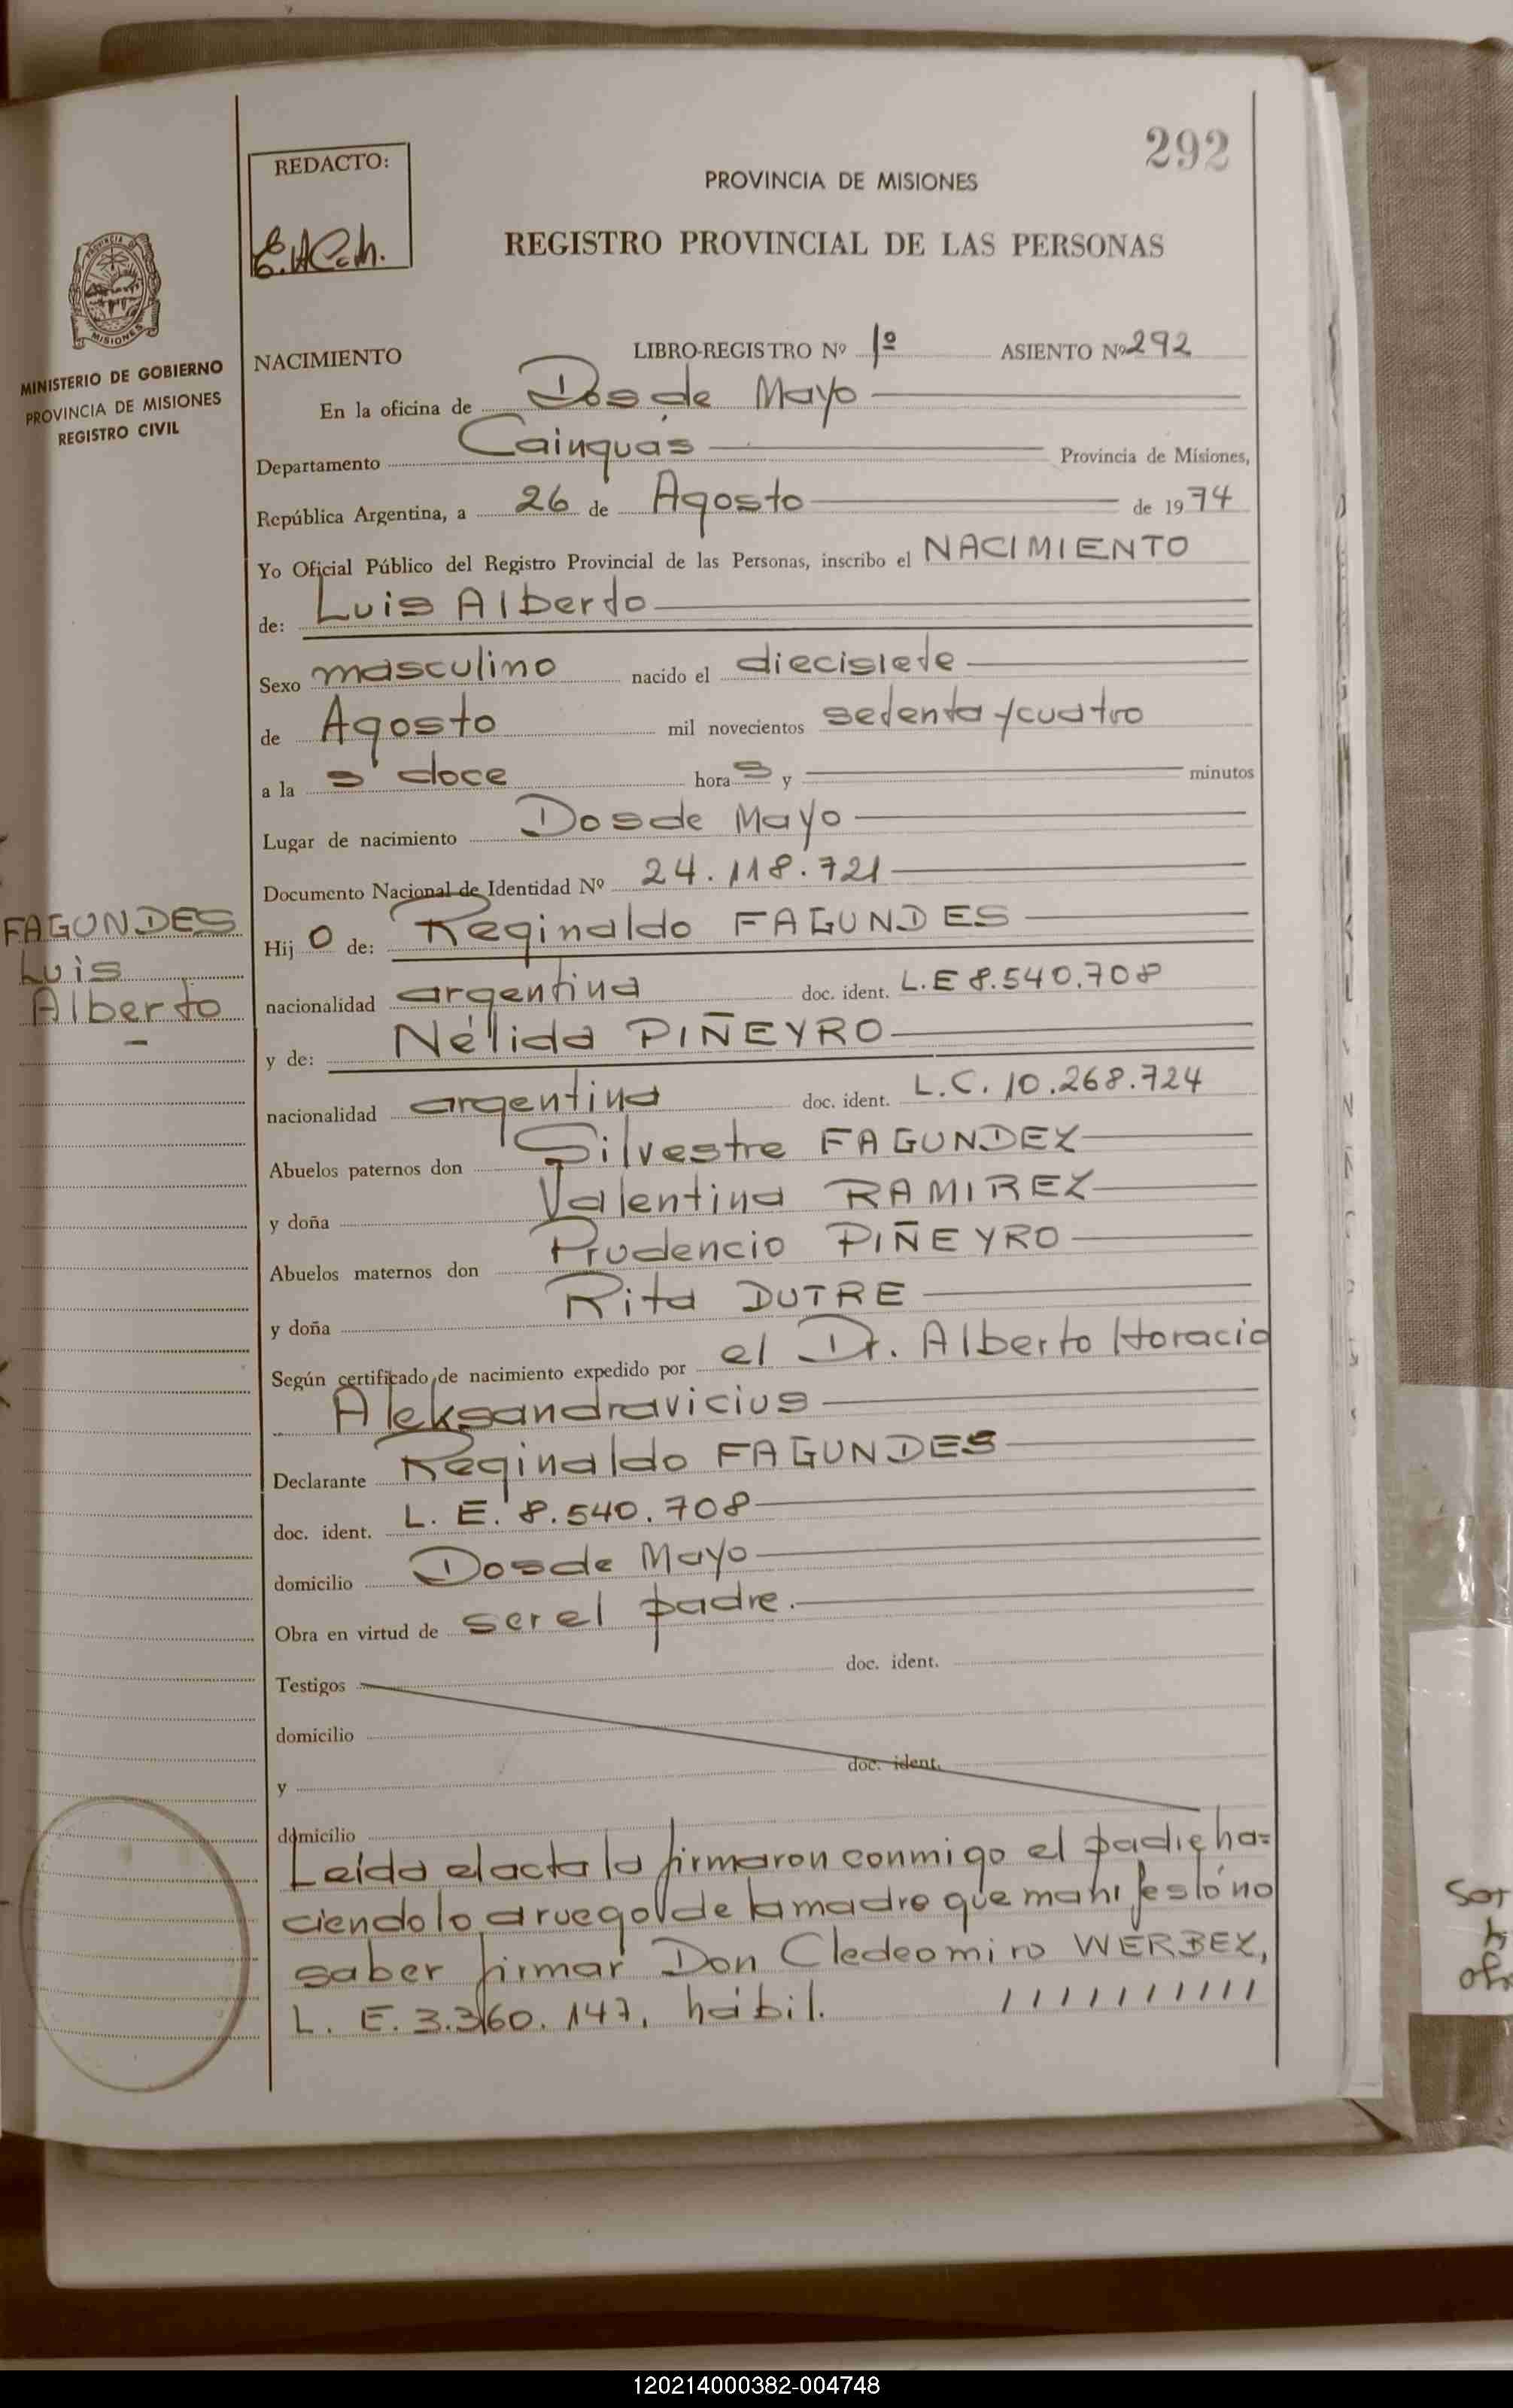 292
REDACTO:
PROVINCIA DE MISIONES
REGISTRO PROVINCIAL DE LAS PERSONAS
MISIONES
MINISTERIO DE GOBIERNO
PROVINCIA DE MISIONES
REGISTRO CIVIL
NACIMIENTO LIBRO-REGISTRO Nº 1º ASIENTO Nº 292
En la oficina de Dos de Mayo
Departamento Cainguás Provincia de Misiones,
República Argentina, a 26 de Agosto de 1974
Yo Oficial Público del Registro Provincial de las Personas, inscribo el NACIMIENTO
de: Luis Alberto
Sexo masculino nacido el diecisiete
de Agosto mil novecientos setenta y cuatro
a la s doce hora s y minutos
Lugar de nacimiento Dos de Mayo
Documento Nacional de Identidad Nº 24.118.721
FAGUNDES
Luis
Alberto
Hij o de: Reginaldo FAGUNDES
nacionalidad argentina doc. ident. L.E 8.540.708
y de: Nélida PIÑEYRO
nacionalidad argentina doc. ident. L.C. 10.268.724
Abuelos paternos don Silvestre FAGUNDEZ
y doña Valentina RAMIREZ
Abuelos maternos don Prudencio PIÑEYRO
y doña Rita DUTRE
Según certificado de nacimiento expedido por el Dr. Alberto Horacio
Aleksandravicius
Declarante Reginaldo FAGUNDES
doc. ident. L. E. 8.540.708
domicilio Dos de Mayo
Obra en virtud de ser el padre.
Testigos doc. ident.
domicilio
y doc. ident.
domicilio
Leída el acta la firmaron conmigo el padre ha=
ciendolo a ruego de la madre que manifestó no
saber firmar Don Cledeomiro WERBEZ,
L. E. 3.360.147, hábil.
120214000382-004748